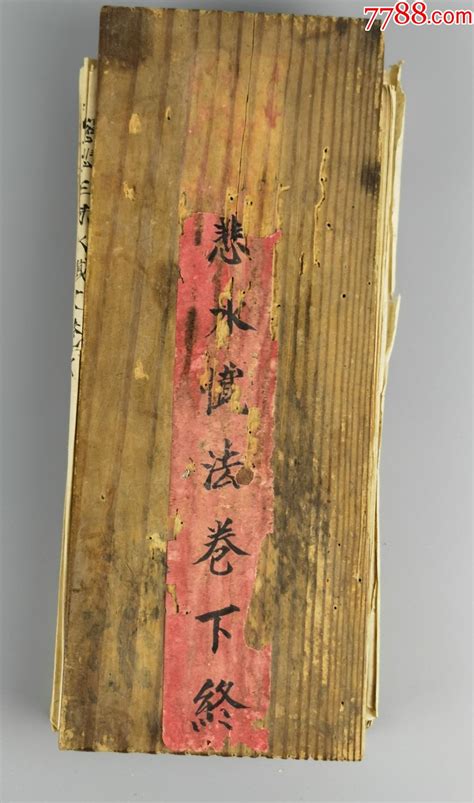 7788.com
悲水懴法卷下終